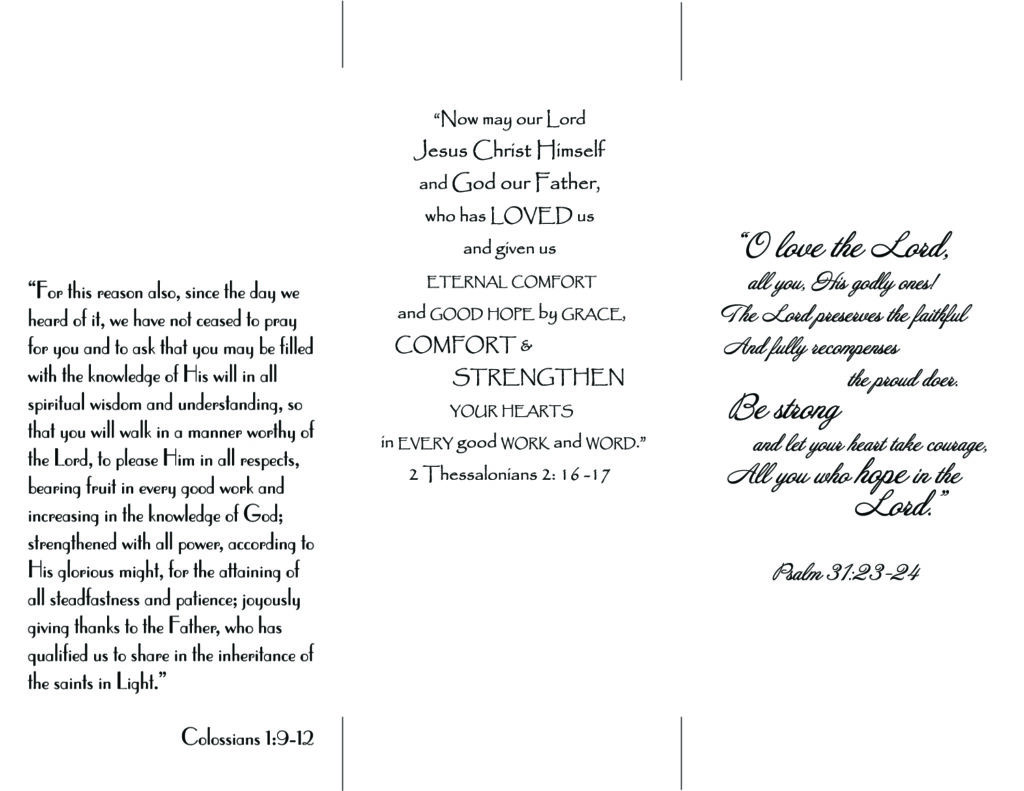 “For this reason also, since the day we
heard of it, we have not ceased to pray
for you and to ask that you may be filled
with the knowledge of His will in all
spiritual wisdom and understanding, so
that you will walk in a manner worthy of
the Lord, to please Him in all respects,
bearing fruit in every good work and
increasing in the knowledge of God;
strengthened with all power, according to
His glorious might, for the attaining of
all steadfastness and patience; joyously
giving thanks to the Father, who has
qualified us to share in the inheritance of
the saints in Light.”
Colossians 1:9-12
“Now may our Lord
Jesus Christ Himself
and God our Father,
who has LOVED us
and given us
ETERNAL COMFORT
and GOOD HOPE by GRACE,
COMFORT &
STRENGTHEN
YOUR HEARTS
in EVERY good WORK and WORD.”
2 Thessalonians 2: 16 -17
“O love the Lord,
all you, His godly ones!
The Lord preserves the faithful
And fully recompenses
the proud doer.
Be strong
and let your heart take courage,
All you who hope in the
Lord.”
Psalm 31:23-24